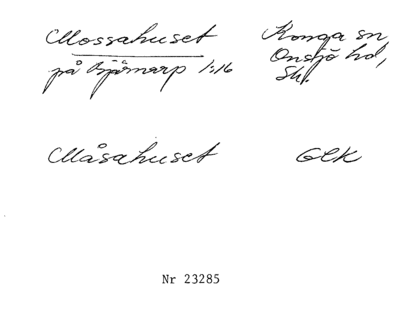 Mossahuset
på Bjärnarp 1:16
Konga sn,
Onsjö hd,
Sk.
Måsahuset
GEK
Nr 23285